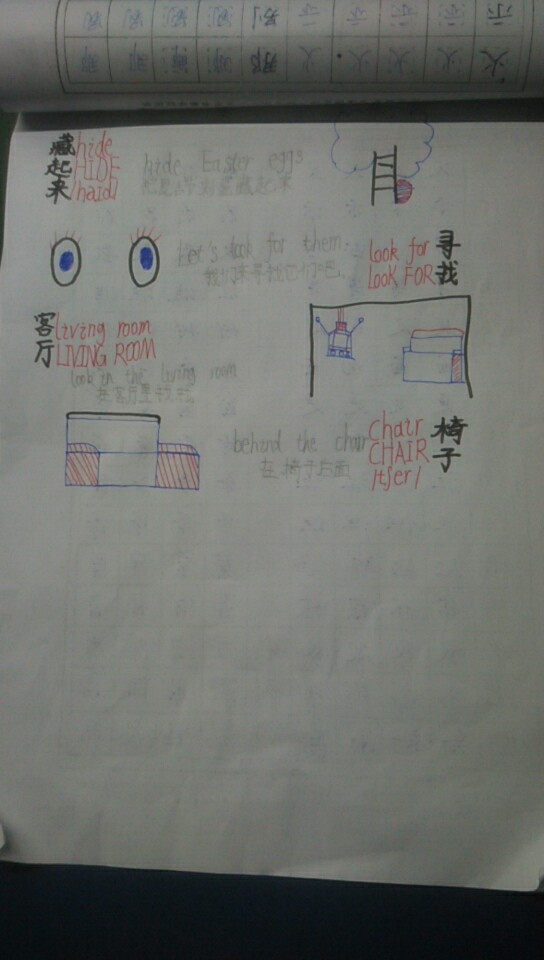 藏起来
hide
HIDE
/haid/
hide Easter eggs
把复活节彩蛋藏起来
Let's look for them.
我们来寻找它们吧
look for
LOOK FOR
寻找
客厅
living room
LIVING ROOM
look in the living room
在客厅里找找
behind the chair
在椅子后面
chair
CHAIR
/tʃer/
椅子